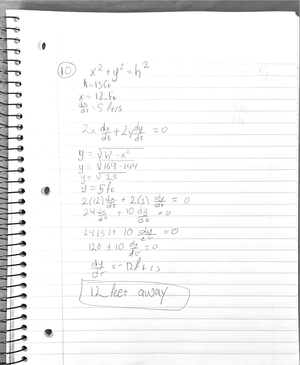 10 x² + y² = h²
h = 13ft
x = 12 ft
dx/dt = 5 ft/s
2x dx/dt + 2y dy/dt = 0
y = √h² - x²
y = √169 - 144
y = √25
y = 5 ft
2(12) dx/dt + 2(5) dy/dt = 0
24 dx/dt + 10 dy/dt = 0
24(5) + 10 dy/dt = 0
120 + 10 dy/dt = 0
dy/dt = -12 ft/s
12 feet away